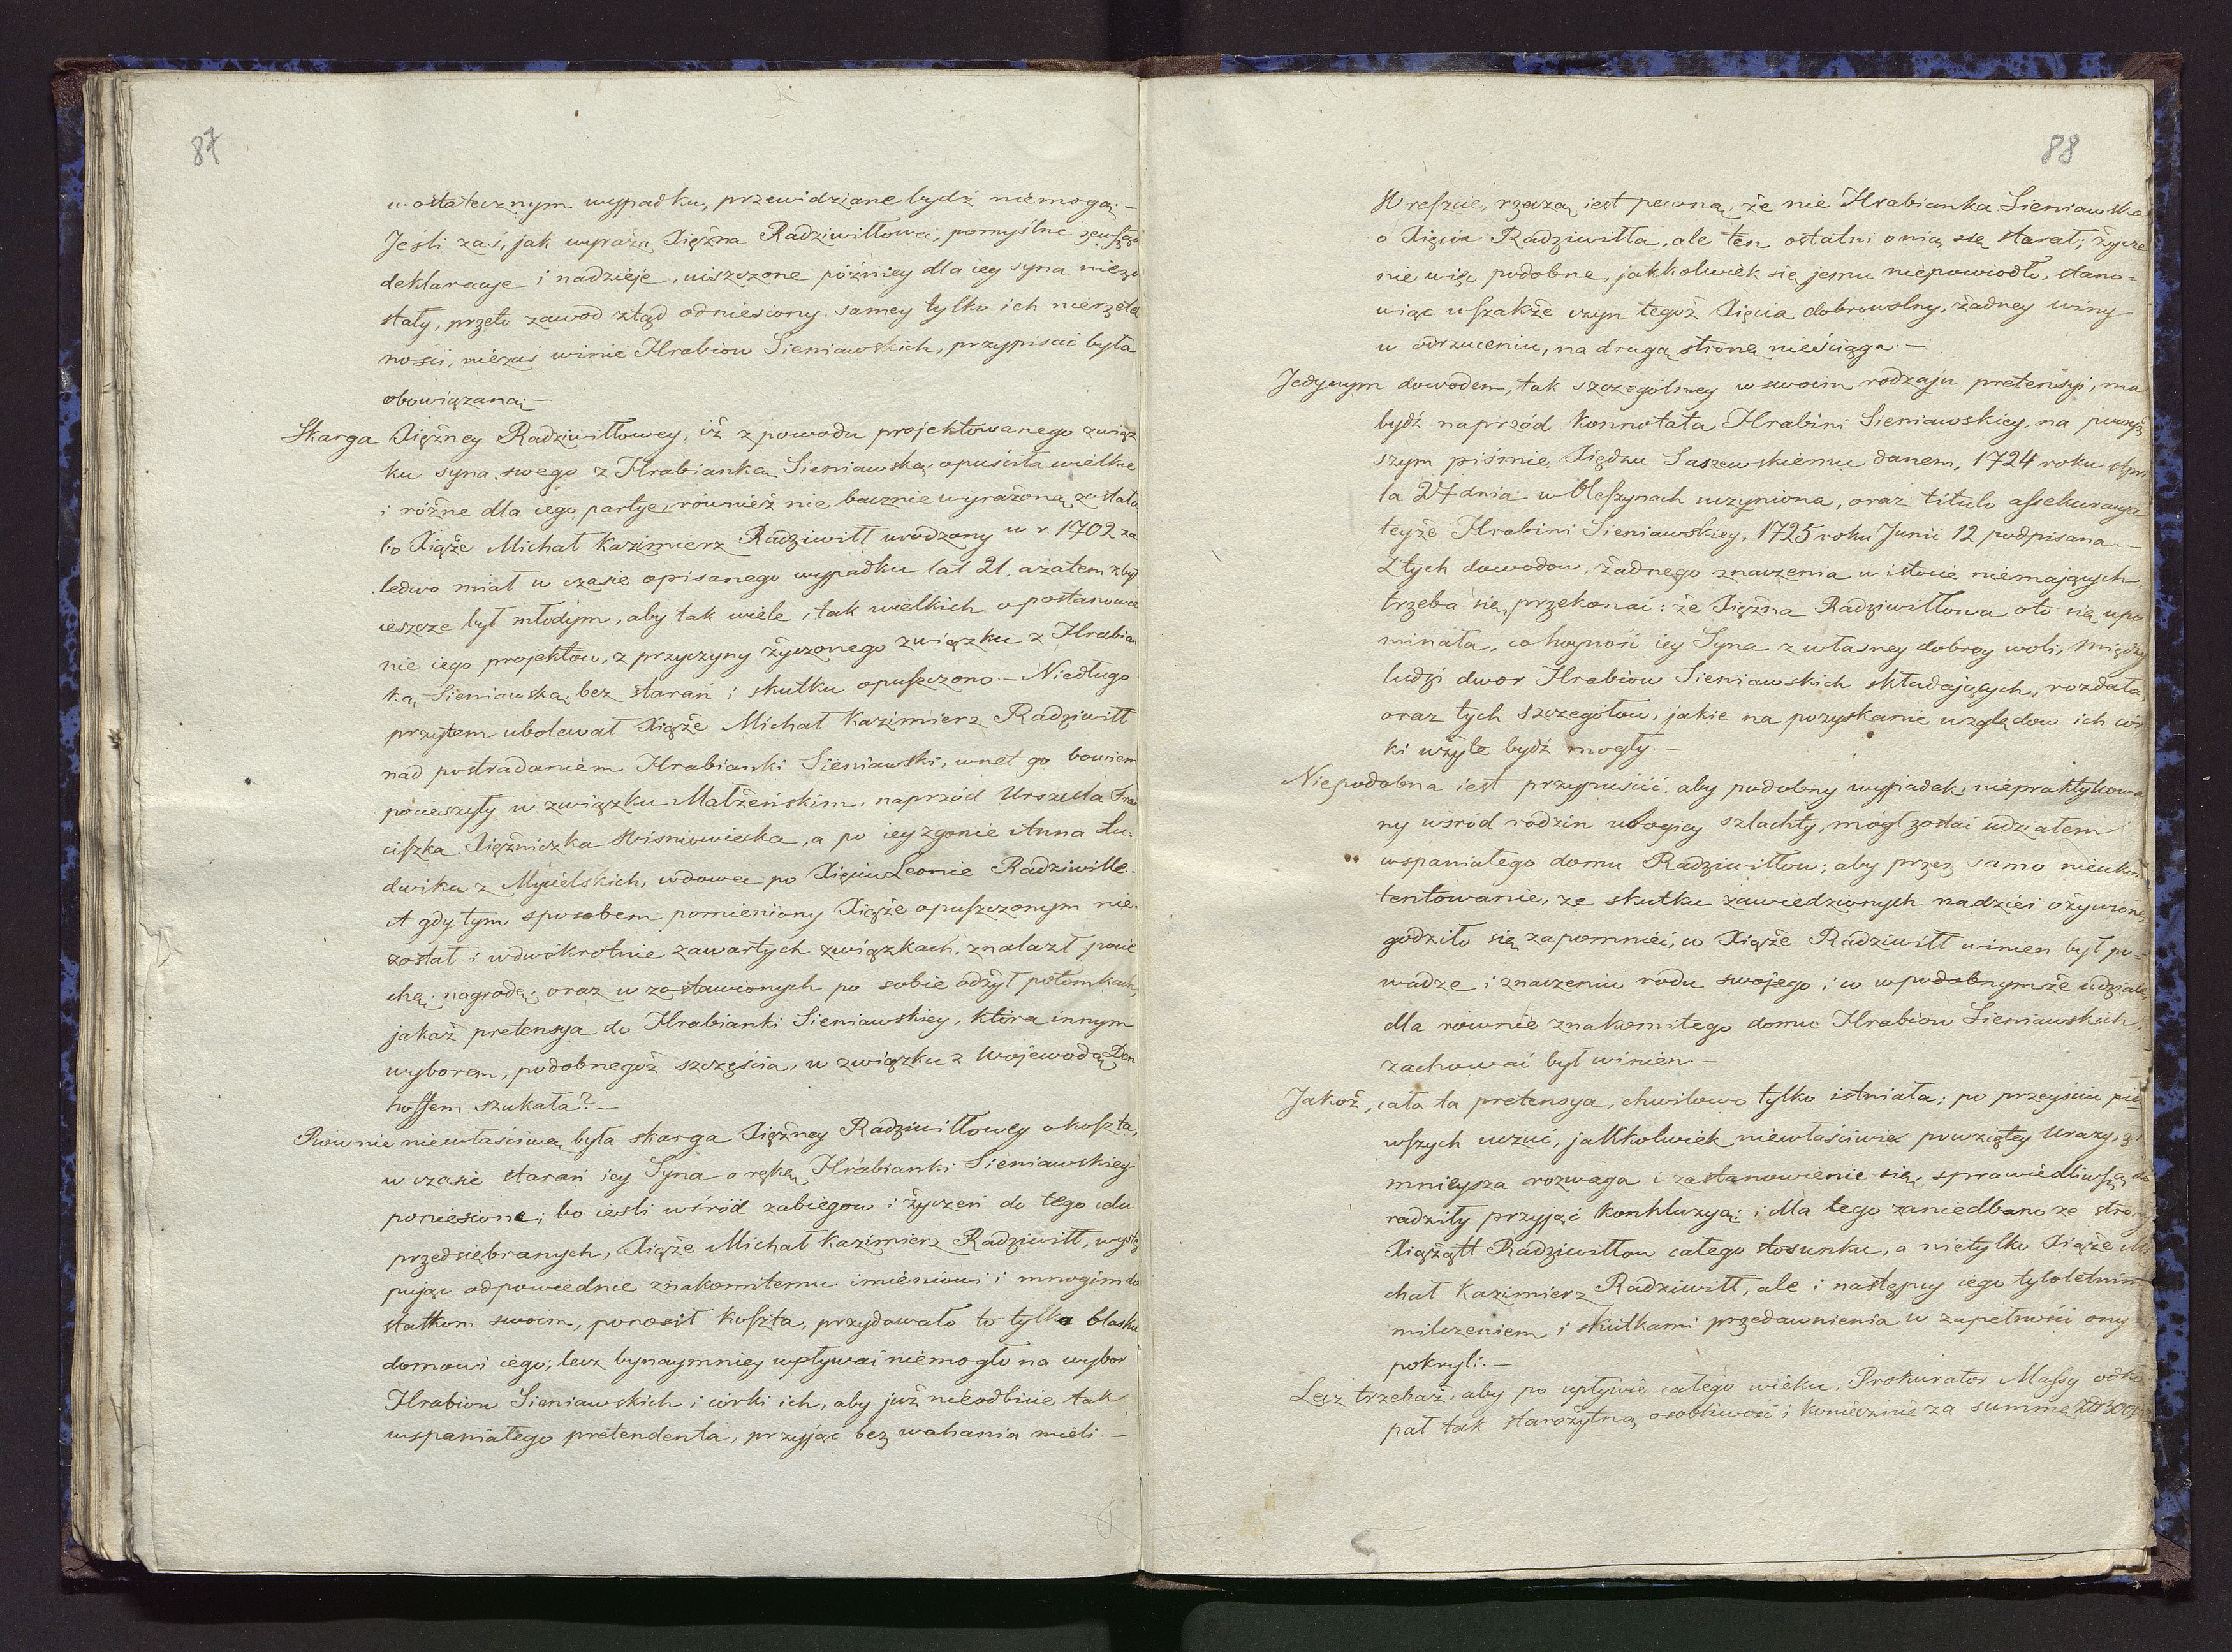 87
w ostatecznym wypadku, przewidziane bydź niemogą.—
Jeśli zaś, jak wyraża Xiężna Radziwiłłowa, pomyślne zewsząd
deklaracye i nadzieje, uiszczone późniey dla iey syna niezo
stały, przeto zawod ztąd odniesiony samey tylko ich nierzetel
ności, niezaś winie Hrabiow Sieniawskich, przypisać była
obowiązaną.—
Skarga Xiężney Radziwiłłowey, iż z powodu projektowanego związ
ku syna swego z Hrabianką Sieniawską, opuściła wielkie
i różne dla iego partye, również nie bacznie wyrażoną została
bo Xiąże Michał Kazimierz Radziwiłł urodzony w r 1702 za
ledwo miał w czasie opisanego wypadku lat 21, a zatem zbyt
ieszcze był młodym, aby tak wiele i tak wielkich o postanowie
nie iego projektow, z przyczyny życzonego związku z Hrabian
ką Sieniawską, bez starań i skutku opuszczono.— Niedługo
przytem ubolewał Xiąże Michał Kazimierz Radziwiłł
nad postradaniem Hrabianki Sieniawski, wnet go bowiem
pocieszyły w związku Małżeńskim, naprzód Urszula Fran
ciszka Xiężniczka Wiśniowiecka, a po iey zgonie Anna Lu
dwika z Mycielskich, wdowa po Xięciu Leonie Radziwille.
A gdy tym sposobem pomieniony Xiąże opuszczonym nie
został i w dwókrotnie zawartych związkach, znalazł pocie
chę i nagrodę, oraz w zostawionych po sobie odżył potomkach,
jakaż pretensya do Hrabianki Sieniawskiey, która innym
wyborem, podobnegoż szczęścia, w związku z Wojewodą Den
hoffem szukała?—
Równie niewłaściwą była skarga Xiężney Radziwiłłowey o koszta,
w czasie starań iey Syna o rękę Hrabianki Sieniawskiey
poniesione; bo ieśli wśród zabiegow i życzeń do tego celu
przedsiębranych, Xiąże Michał Kazimierz Radziwiłł, wystę
pując odpowiednie znakomitemu imieniowi i mnogim do
statkom swoim, ponosił koszta, przydawało to tylko blasku
domowi iego, lecz bynaymniey wpływać niemogło na wybor
Hrabiow Sieniawskich i córki ich, aby już nieodbicie tak
wspaniałego pretendenta, przyjąć bez wahania mieli.—
88
Wreszcie, rzeczą iest pewną, że nie Hrabianka Sieniawska
o Xięcia Radziwiłła, ale ten ostatni o nią się starał; życze
nie więc podobne, jakkolwiek się jemu niepowiodło, stano=
wiąc wszakże czyn tegoż Xięcia dobrowolny, żadney winy
w odrzuceniu, na drugą stronę nieściąga.—
Jedynym dowodem, tak szczególney w swoim rodzaju pretensyi, ma
bydź naprzód Konnotata Hrabini Sieniawskiey, na powyż
szym piśmie Xiędzu Saszewskiemu danem, 1724 roku
la 27 dnia w Oleszycach uczyniona, oraz titulo assekuracya
teyże Hrabini Sieniawskiey, 1725 roku Junii 12 podpisana.—
Z tych dowodow, żadnego znaczenia w istocie niemających,
trzeba się przekonać: że Xiężna Radziwiłłowa oto się upo
minała, co hoyność iey Syna z własney dobrey woli, między
ludzi dwor Hrabiow Sieniawskich składających, rozdała,
oraz tych szczegołow, jakie na pozyskanie względow ich cor
ki użyte bydź mogły.—
Niepodobna iest przypuścić, aby podobny wypadek, niepraktykowa
ny wsród rodzin ubogiey szlachty, mógł zostać udziałem
wspaniałego domu Radziwiłłow; aby przez samo nieukon
tentowanie, ze skutku zawiedzionych nadziei ożywione,
godziło się zapomnieć, co Xiąże Radziwiłł winien był po=
wadze i znaczeniu rodu swojego, i co w podobnymże udziale,
dla równie znakomitego domu Hrabiow Sieniawskich,
zachować był winien—
Jakoż, cała ta pretensya, chwilowo tylko istniała; po przeyściu pie
wszych uczuć, jakkolwiek niewłaściwie powziętey urazy,
mnieysza rozwaga i zastanowienie się, sprawiedliwszą do
radziły przyjąć konkluzyą; i dla tego zaniedbano ze strony
Xiążątt Radziwiłłow całego stosunku, a nietylko Xiąże Mi
chał Kazimierz Radziwiłł, ale i następcy iego tyloletnim
milczeniem i skutkami przedawnienia w zupełności ony
pokryli.—
Lecz trzebaż, aby po upływie całego wieku, Prokurator Massy odko
pał tak starożytną osobliwość i koniecznie za summę